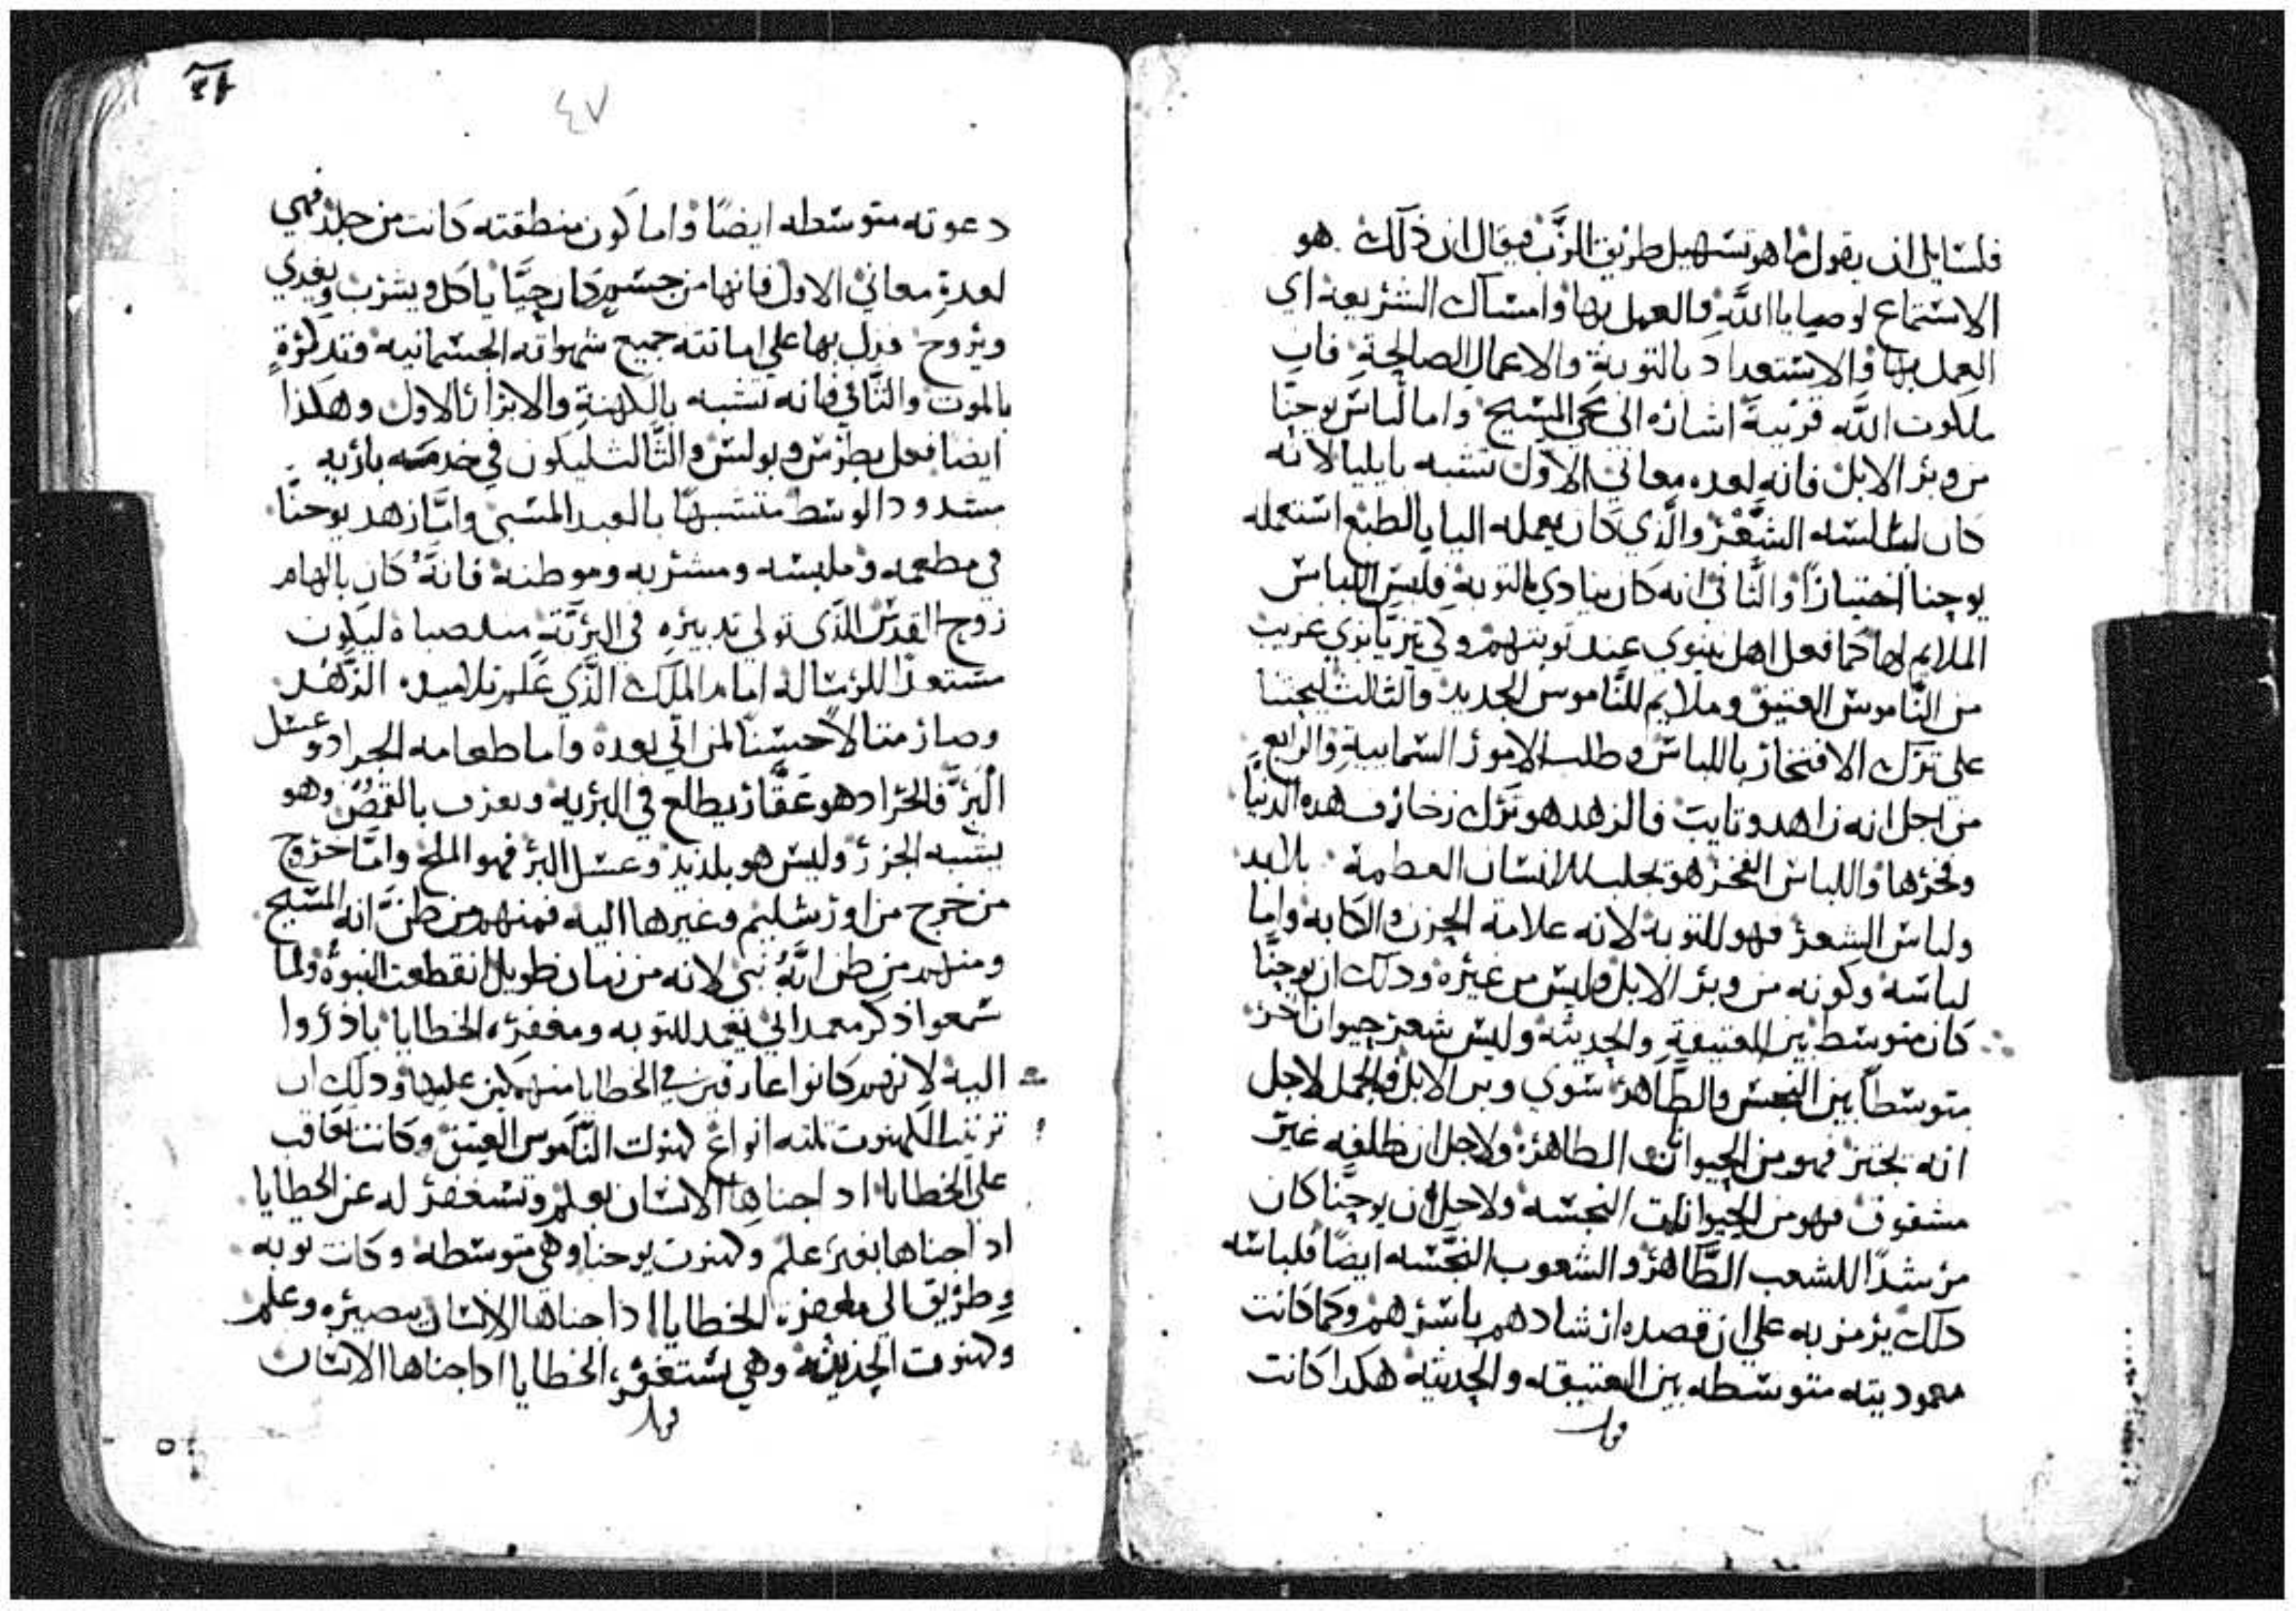 فلسايل ان يقول ما هو تسهيل طريق الرَّب فيقال ان ذلك هو
الاستماع لوصايا اللَّه والعمل بها وامساك الشريعه اي
العمل بها والاستعداد بالتوبةِ والاعمال الصالحةِ فان
ملكوت اللَّه قريبةَ اشاره الى مجي المسيح واما لباس يوحنَّا
من وبر الابل فانه لعده معاني الاول تشبه بايليا لانه
كان لباسه الشَّعْر والَّذي كان يعمله اليا بالطبع استعمله
يوحنا اختياراً والثَّاني انه كان ينادي بالتوبة فلبس اللباس
الملايم لها كما فعل اهل نينوي عند توبتهم ولكي يتزيَّا بزي غريب
من النَّاموس العتيق وملايم للنَّاموس الجديد والثالث ليحتنا
على ترك الافتخار باللباس وطلب الامور السَّمايية والرابع
من اجل انه زاهد وتايب فالزهد هو ترك زخارف هده الدنيَّا
وفخرها واللباس الفخر هو يجلب للانسان العظمة
ولباس الشعر فهو للتوبه لانه علامة الحزن والكابه واما
لباسه وكونه من وبر الابل وليس من غيره ودلك ان يوحنَّا
كان متوسط بين العتيقةِ والحديثه وليس شعر حيوان اخر
متوسطاً بين النجس والطَّاهر سوي وبر الابل فالجمل لاجل
انه يجتر فهو من الحيوانات الطاهرة ولاجل ان ظلفه غير
مشقوق فهو من الحيوانات النجسه ولاجل ان يوحنَّا كان
مرشدًا للشعب الطَّاهر والشعوب النجَّسه ايضًا فلباسه
دلك يرمز به علي ان قصده ارشادهم باسرهم وكما كانت
معموديته متوسطه بين العتيقه والحديثه هكدا كانت
٤٧
دعوته متوسطه ايضًا واما كون منطقته كانت من جلد فهي
لعدةِ معاني الاول فانها من جسم كان حيَّا ياكل ويشرب
ويروح فدل بها علي اماتته جميع شهواته الجسمانيه
بالموت والثَّاني فانه تشبه بالكهنةِ والابرار الاول وهكذا
ايضا فعل بطرس وبولس والثَّالث ليكون في خدمته باريه
مشدود الوسط متشبهًا بالعبد المسبي وامَّا زهد يوحنَّا
في مطعمه وملبسه ومشربه وموطنه فانَّهُ كان بالهام
روح القدس الَّذي تولي تدبيره في البرَّيَّةِ منذ صباه ليكون
مستعداً للرسالة امام الملك الَّذي علَّم تلاميده الزَّهد
وصار مثالاً حسناً لمن اتي بعده واما طعامه الجراد وعسل
البَرِّ فالجراد هو عقَّار يطلع في البريه ويعرف بالقمصُ وهو
يشبه الجزر وليس هو بلديد وعسل البر فهو الملح وامَّا خروج
من خرج من اورشليم وغيرها اليه فمنهم من ظنَّ انه المسيح
ومنهم من ظن انَّهُ نبي لانه من زمان طويل انقطعت النبوةُ ولما
سمعوا ذكر معمداني يعمد للتوبه ومغفرة الخطايا بادروا
اليه لانهم كانوا غارقين في الخطايا منهمكين عليها ودلك ان
ترتيب الكهنوت تلته انواع كهنوت النَّاموس العتيق وكانت تعاقب
علي الخطايا اد اجناها الانسان بعلم وتستغفر له عن الخطايا
اد اجناها بغير علم وكهنوت يوحنا وهي متوسطه وكانت توبه
وطريق الي مغفرة الخطايا ادا جناها الانسان ببصيره وعلم
وكهنوت الحديثه وهي تستغفر الخطايا ادا جناها الانسان